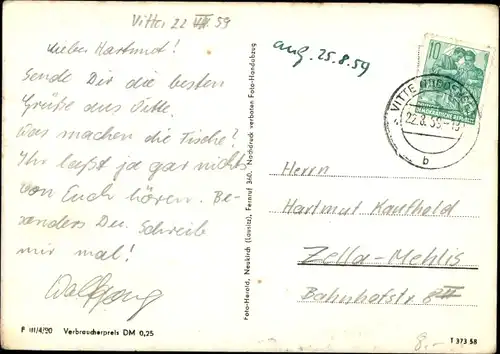 Vitte, 22 VIII 59
Lieber Hartmut!
Sende Dir die besten
Grüße aus Vitte.
Was machen die Fische?
Ihr laßt ja gar nichts
von Euch hören. Be-
sonders Du. Schreib
mir mal!
Wolfgang
P III/4/90 Verbraucherpreis DM 0,25
Foto-Herold, Neukirch (Lausitz), Fernruf 360. Nachdruck verboten Foto-Handabzug
ang. 25.8.59
10
VITTE
22.8.59
b
Herrn
Hartmut Kaufhold
Zella-Mehlis
Bahnhofstr. 8 III
T 373 58
8,-